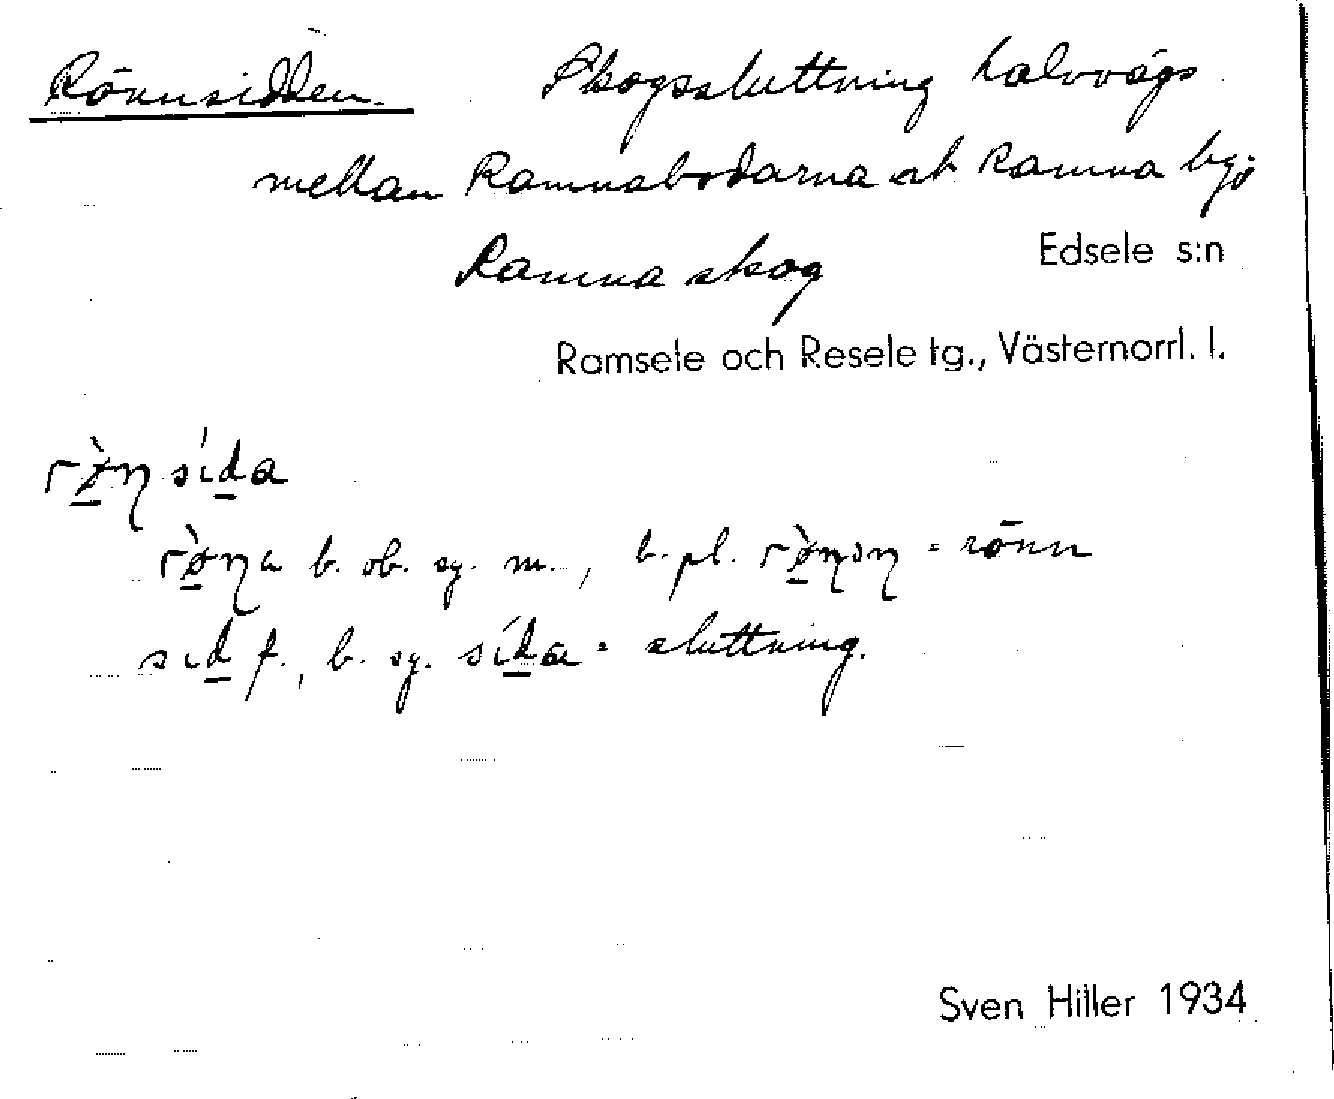 Rönnsidden. Skogssluttning halvvägs
mellan Ramnabodarna ok Ramna by;
Ramna skog Edsele s:n
Ramsele och Resele tg., Västernorrl. l.
rø̀ṇ sída
rø̀ṇa b. ob. sg. m., b. pl. rø̀ṇəṇ = rönn
sıd f., b. sg. sída = sluttning.
Sven Hiller 1934